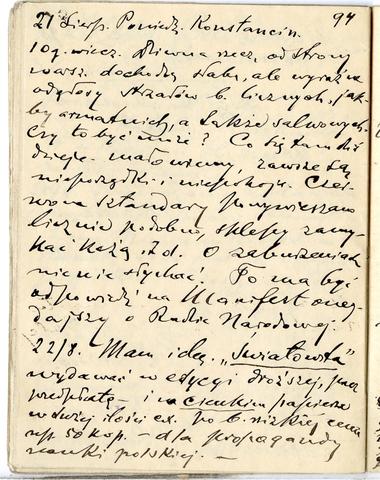 21 Sierp. Poniedz. Konstancin. 94
10 g. wiecz. Dziwna rzecz, od strony
warsz. dochodzą słabe, ale wyraźne
odgłosy strzałów b. licznych, jak-
by armatnich, a także salwowych.
Czy to być może? Co się tam dziś
dzieje – mało wiemy, zawsze są
nieporządki i niepokoje. Czer-
wone sztandary powywieszano
licznie podobno, sklepy zamy-
kać każą itd. O zaburzeniach
nie nie słychać. To ma być
odpowiedź na Manifest oneg-
dajszy o Radzie Narodowej.
22/8. Mam ideę „Światowita"
wydawać w edycyi droższej, przez
przedpłatę – i na cienkim papierze
w dużej ilości ex. po b. nizkiej cenie
np. 50 kop. – dla propagandy
nauki polskiej. –